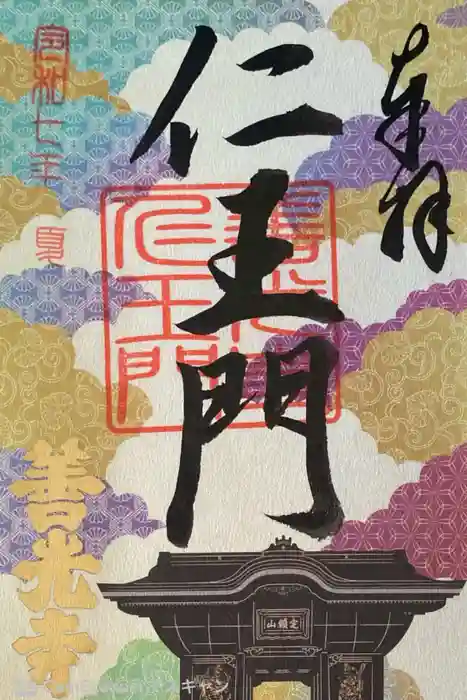 奉拝
仁王門
善光寺
仁王門
令和七年
夏
善光寺
定額山